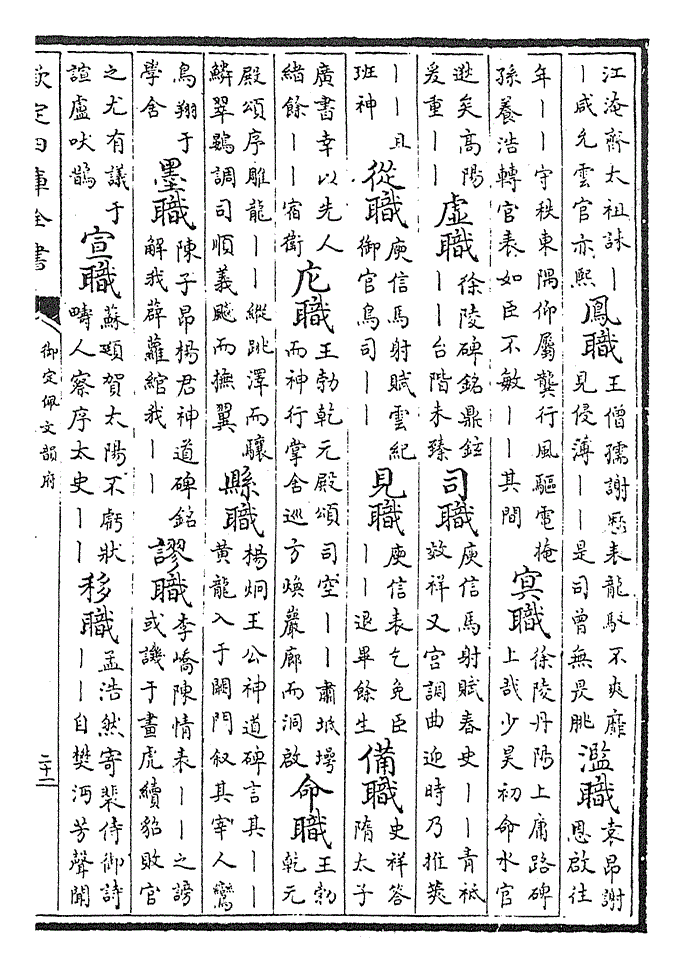 江淹齊太祖誄丨丨咸允雲官亦熙 鳳職 王僧孺謝歷表龍馭不爽靡見侵薄丨丨是司曾無畏朓 濫職 袁昂謝恩啟往
年丨丨守秩東隅仰屬龔行風驅電掩孫養浩轉官表如臣不敏丨丨其間 冥職 徐陵丹陽上庸路碑上哉少昊初命水官
逖矣高陽爰重丨丨 虛職 徐陵碑銘鼎鉉丨丨台階未臻 司職 庾信馬射賦春史丨丨青祗效祥又宫調曲迎時乃推筴
丨丨且班神 從職 庾信馬射賦雲紀御官鳥司丨丨 見職 庾信表乞免臣丨丨退畢餘生 備職 史祥答隋太子
廣書幸以先人緒餘丨丨宿衛 庀職 王勃乾元殿頌司空丨丨肅坻堮而神行掌舍巡方煥巖廊而洞啟 命職 王勃乾元
殿頌序雕龍丨丨縱跳澤而驤鱗翠鶂調司順義颷而撫翼 縣職 楊炯王公神道碑言其丨丨黄龍入于闕門叙其宰人鸞
鳥翔于學舍 墨職 陳子昂楊君神道碑銘解我薜蘿綰我丨丨 謬職 李嶠陳情表丨丨之謗或譏于畫虎續貂敗官
之尤有議于諠盧吠鵲 宣職 蘇頲賀太陽不虧狀疇人寮序太史丨丨 移職 孟浩然寄裴侍御詩丨丨自樊沔芳聲聞
欽定四庫全書
御定佩文韻府
二十二